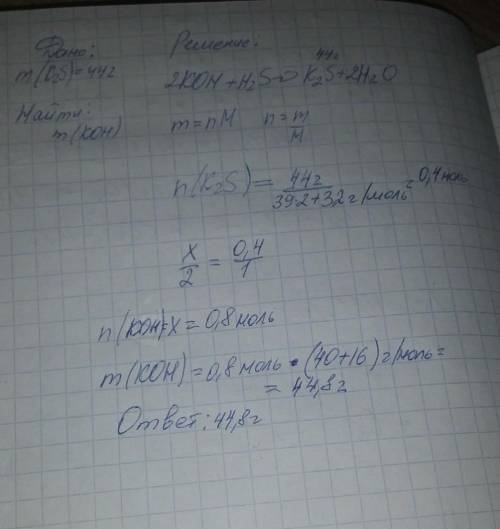 Дано:
m(K₂S)=44г
Найти:
m(KOH)
Решение:
44г
2KOH+H₂S→K₂S+2H₂O
m=nM n=m/M
n(K₂S)=44г/(39·2+32г/моль)=0,4моль
X/2=0,4/1
n(KOH)=X=0,8моль
m(KOH)=0,8моль·(40+16)г/моль=
=44,8г
Ответ:44,8г